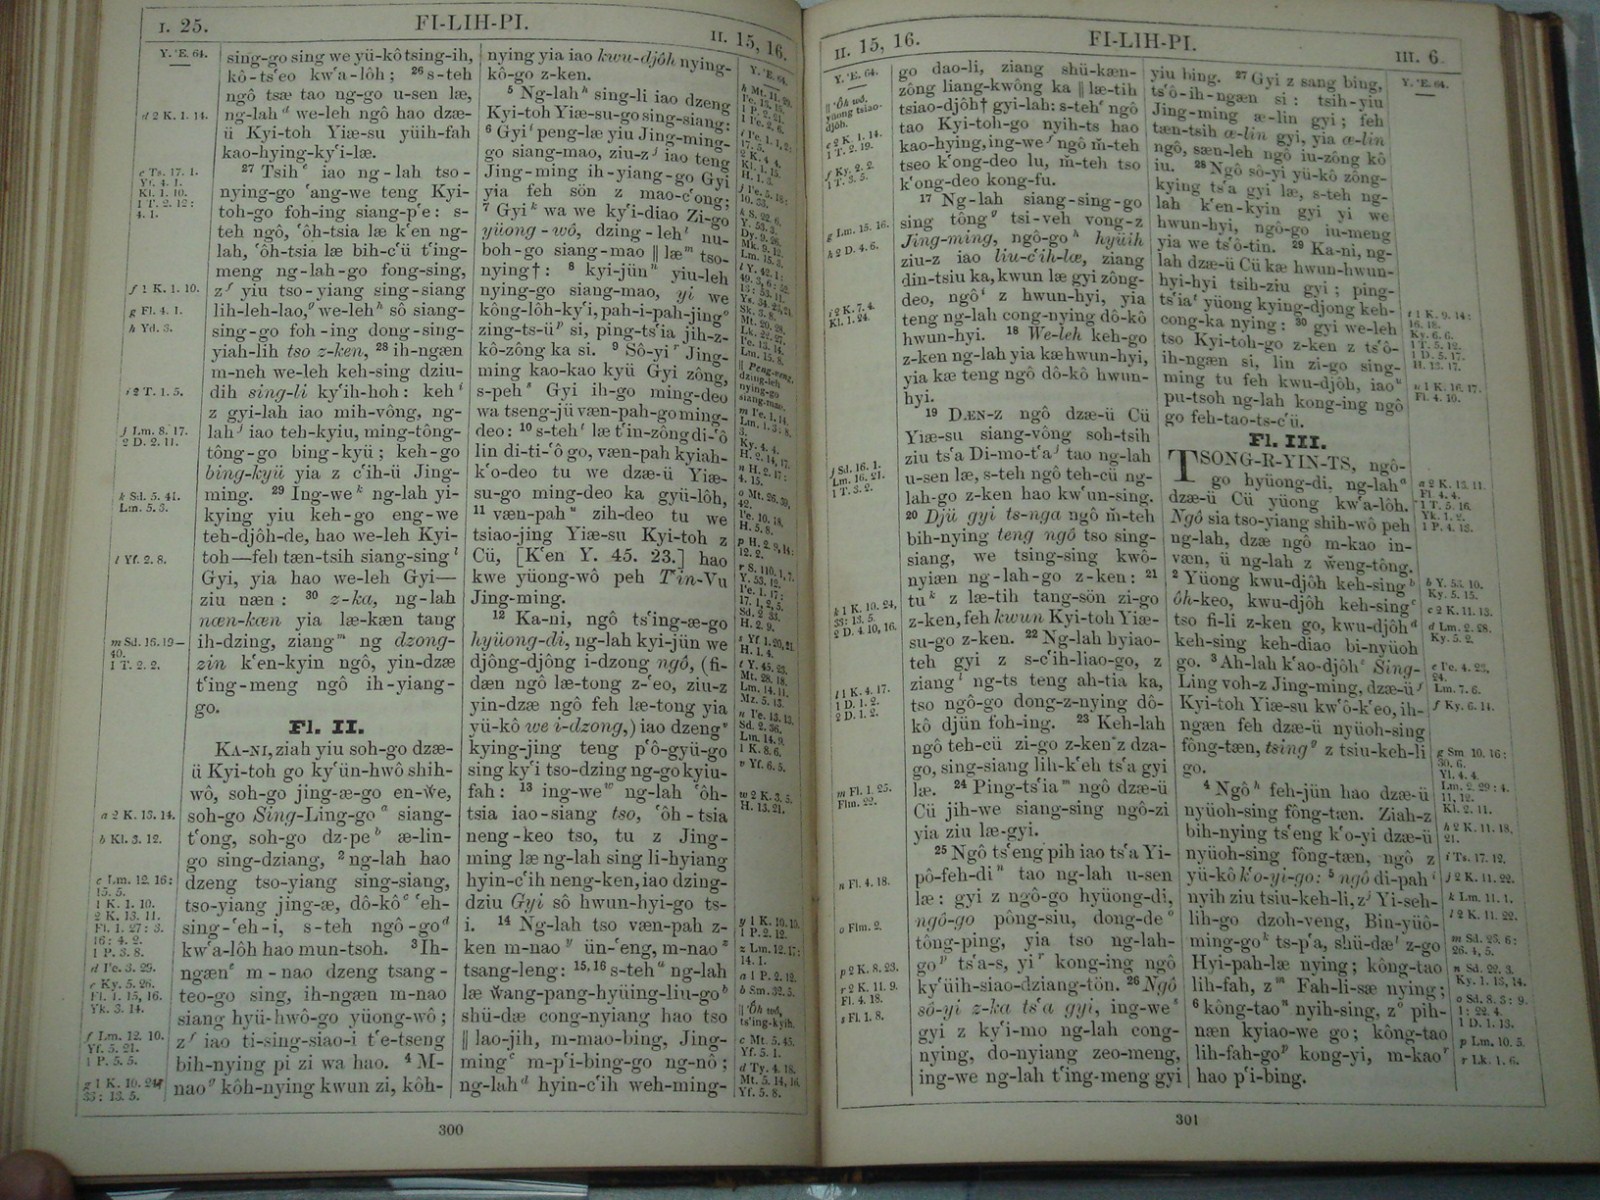 I. 25.
FI-LIH-PI.
II. 15, 16.
Y. 'E. 64.
d 2 K. 1. 14.
e Ts. 17. 1.
Yf. 4. 1.
Kl. 1. 10.
1 T. 2. 12:
4. 1.
f 1 K. 1. 10.
g Fl. 4. 1.
h Yd. 3.
i 2 T. 1. 5.
j Lm. 8. 17.
2 D. 2. 11.
k Sd. 5. 41.
Lm. 5. 3.
l Yf. 2. 8.
m Sd. 16. 19-
40.
1 T. 2. 2.
a 2 K. 13. 14.
b Kl. 3. 12.
c Lm. 12. 16:
15. 5.
1 K. 1. 10.
2 K. 13. 11.
Fl. 1. 27: 3.
16: 4. 2.
1 P. 3. 8.
d Pe. 3. 29.
e Ky. 5. 26.
Fl. 1. 15, 16.
Yk. 3. 14.
f Lm. 12. 10.
Yf. 5. 21.
1 P. 5. 5.
g 1 K. 10. 24,
33: 13. 5.
sing-go sing we yü-kô tsing-ih,
kô-ts'eo kw'a-lôh; 26 s-teh
ngô tsæ tao ng-go u-sen læ,
ng-lah d we-leh ngô hao dzæ-
ü Kyi-toh Yiæ-su yüih-fah
kao-hying-ky'i-læ.
27 Tsih e iao ng-lah tso-
nying-go 'ang-we teng Kyi-
toh-go foh-ing siang-p'e: s-
teh ngô, 'ôh-tsia læ k'en ng-
lah, 'ôh-tsia læ bih-c'ü t'ing-
meng ng-lah-go fong-sing,
z f yiu tso-yiang sing-siang
lih-leh-lao, g we-leh h sô siang-
sing-go foh-ing dong-sing-
yiah-lih tso z-ken, 28 ih-ngæn
m-neh we-leh keh-sing dziu-
dih sing-li ky'ih-hoh: keh i
z gyi-lah iao mih-vông, ng-
lah j iao teh-kyiu, ming-tông-
tông-go bing-kyü; keh-go
bing-kyü yia z c'ih-ü Jing-
ming. 29 Ing-we k ng-lah yi-
kying yiu keh-go eng-we
teh-djôh-de, hao we-leh Kyi-
toh—feh tæn-tsih siang-sing l
Gyi, yia hao we-leh Gyi—
ziu næn: 30 z-ka, ng-lah
næn-kæn yia læ-kæn tang
ih-dzing, ziang m ng dzong-
zin k'en-kyin ngô, yin-dzæ
t'ing-meng ngô ih-yiang-
go.
Fl. II.
KA-NI, ziah yiu soh-go dzæ-
ü Kyi-toh go ky'ün-hwô shih-
wô, soh-go jing-æ-go en-we,
soh-go Sing-Ling-go a siang-
t'ong, soh-go dz-pe b æ-lin-
go sing-dziang, 2 ng-lah hao
dzeng tso-yiang sing-siang,
tso-yiang jing-æ, dô-kô c 'eh-
sing-'eh-i, s-teh ngô-go d
kw'a-lôh hao mun-tsoh. 3 Ih-
ngæn e m-nao dzeng tsang-
teo-go sing, ih-ngæn m-nao
siang hyü-hwô-go yüong-wô;
z f iao ti-sing-siao-i t'e-tseng
bih-nying pi zi wa hao. 4 M-
nao g kôh-nying kwun zi, kôh-
nying yia iao kwu-djôh nying-
kô-go z-ken.
5 Ng-lah h sing-li iao dzeng
Kyi-toh Yiæ-su-go sing-siang:
6 Gyi i peng-læ yiu Jing-ming-
go siang-mao, ziu-z j iao teng
Jing-ming ih-yiang-go Gyi
yia feh sön z mao-c'ong;
7 Gyi k wa we ky'i-diao Zi-go
yüong-wô, dzing-leh l nu-
boh-go siang-mao || læ m tso-
nying†: 8 kyi-jün n yiu-leh
nying-go siang-mao, yi we
kông-lôh-ky'i, pah-i-pah-jing o
zing-ts-ü p si, ping-ts'ia jih-z-
kô-zông ka si. 9 Sô-yi r Jing-
ming kao-kao kyü Gyi zông,
s-peh s Gyi ih-go ming-deo
wa tseng-jü væn-pah-go ming-
deo: 10 s-teh t læ t'in-zông di-'ô
lin di-ti-'ô go, væn-pah kyiah-
k'o-deo tu we dzæ-ü Yiæ-
su-go ming-deo ka gyü-lôh,
11 væn-pah u zih-deo tu we
tsiao-jing Yiæ-su Kyi-toh z
Cü, [K'en Y. 45. 23.] hao
kwe yüong-wô peh T'in-Vu
Jing-ming.
12 Ka-ni, ngô ts'ing-æ-go
hyüong-di, ng-lah kyi-jün we
djông-djông i-dzong ngô, (fi-
dæn ngô læ-tong z-'eo, ziu-z
yin-dzæ ngô feh læ-tong yia
yü-kô we i-dzong,) iao dzeng v
kying-jing teng p'ô-gyü-go
sing ky'i tso-dzing ng-go kyiu-
fah: 13 ing-we w ng-lah 'ôh-
tsia iao-siang tso, 'ôh-tsia
neng-keo tso, tu z Jing-
ming læ ng-lah sing li-hyiang
hyin-c'ih neng-ken, iao dzing-
dziu Gyi sô hwun-hyi-go ts-
i. 14 Ng-lah tso væn-pah z-
ken m-nao y ün-'eng, m-nao z
tsang-leng: 15, 16 s-teh a ng-lah
læ wang-pang-hyüing-liu-go b
shü-dæ cong-nyiang hao tso
|| lao-jih, m-mao-bing, Jing-
ming c m-p'i-bing-go ng-nô;
ng-lah d hyin-c'ih weh-ming-
Y. 'E. 64.
300
II. 15, 16.
FI-LIH-PI.
III. 6.
Y. 'E. 64.
e 2 K. 1. 14.
1 T. 2. 19.
f Ky. 2. 2.
1 T. 3. 5.
g Lm. 15. 16.
h 2 D. 4. 6.
i 2 K. 7. 4.
Kl. 1. 24.
j Sd. 16. 1.
Lm. 16. 21.
1 T. 3. 2.
k 1 K. 10. 24,
33: 13. 5.
2 D. 4. 10, 16.
l 1 K. 4. 17.
1 D. 1. 2.
2 D. 1. 2.
m Fl. 1. 25.
Flm. 22.
n Fl. 4. 18.
o Flm. 2.
p 2 K. 8. 23.
r 2 K. 11. 9.
Fl. 4. 18.
s Fl. 1. 8.
go dao-li, ziang shü-kæn-
zông liang-kwông ka || læ-tih
tsiao-djôh† gyi-lah: s-teh e ngô
tao Kyi-toh-go nyih-ts hao
kao-hying, ing-we f ngô m-teh
tseo k'ong-deo lu, m-teh tso
k'ong-deo kong-fu.
17 Ng-lah siang-sing-go
sing tông g tsi-veh vong-z
Jing-ming, ngô-go h hyüih
ziu-z iao liu-c'ih-læ, ziang
din-tsiu ka, kwun læ gyi zông-
deo, ngô i z hwun-hyi, yia
teng ng-lah cong-nying dô-kô
hwun-hyi. 18 We-leh keh-go
z-ken ng-lah yia kæ hwun-hyi,
yia kæ teng ngô dô-kô hwun-
hyi.
19 DÆN-Z ngô dzæ-ü Cü
Yiæ-su siang-vông soh-tsih
ziu ts'a Di-mo-t'a j tao ng-lah
u-sen læ, s-teh ngô teh-cü ng-
lah-go z-ken hao kw'un-sing.
20 Djü gyi ts-nga ngô m-teh
bih-nying teng ngô tso sing-
siang, we tsing-sing kwô-
nyiæn ng-lah-go z-ken: 21
tu k z læ-tih tang-sön zi-go
z-ken, feh kwun Kyi-toh Yiæ-
su-go z-ken. 22 Ng-lah hyiao-
teh gyi z s-c'ih-liao-go, z
ziang l ng-ts teng ah-tia ka,
tso ngô-go dong-z-nying dô-
kô djün foh-ing. 23 Keh-lah
ngô teh-cü zi-go z-ken z dza-
go, sing-siang lih-k'eh ts'a gyi
læ. 24 Ping-ts'ia m ngô dzæ-ü
Cü jih-we siang-sing ngô-zi
yia ziu læ-gyi.
25 Ngô ts'eng pih iao ts'a Yi-
pô-feh-di n tao ng-lah u-sen
læ: gyi z ngô-go hyüong-di,
ngô-go pông-siu, dong-de o
tông-ping, yia tso ng-lah-
go p ts'a-s, yi r kong-ing ngô
ky'üih-siao-dziang-tön. 26 Ngô
sô-yi z-ka ts'a gyi, ing-we s
gyi z ky'i-mo ng-lah cong-
nying, do-nyiang zeo-meng,
ing-we ng-lah t'ing-meng gyi
yiu bing. 27 Gyi z sang bing,
ts'ô-ih-ngæn si: tsih-yiu
Jing-ming æ-lin gyi; feh
tæn-tsih æ-lin gyi, yia æ-lin
ngô, sæn-leh ngô iu-zông kô
iu. 28 Ngô sô-yi yü-kô zông-
kying ts'a gyi læ, s-teh ng-
lah k'en-kyin gyi yi we
hwun-hyi, ngô-go iu-meng
yia we ts'ô-tin. 29 Ka-ni, ng-
lah dzæ-ü Cü kæ hwun-hwun-
hyi-hyi tsih-ziu gyi; ping-
ts'ia t yüong kying-djong keh-
cong-ka nying: 30 gyi we-leh
tso Kyi-toh-go z-ken z ts'ô-
ih-ngæn si, lin zi-go sing-
ming tu feh kwu-djôh, iao u
pu-tsoh ng-lah kong-ing ngô
go feh-tao-ts-c'ü.
Fl. III.
TSONG-R-YIN-TS, ngô-
go hyüong-di, ng-lah a
dzæ-ü Cü yüong kw'a-lôh.
Ngô sia tso-yiang shih-wô peh
ng-lah, dzæ ngô m-kao in-
væn, ü ng-lah z weng-tông.
2 Yüong kwu-djôh keh-sing b
ôh-keo, kwu-djôh keh-sing c
tso fi-li z-ken go, kwu-djôh d
keh-sing keh-diao bi-nyüoh
go. 3 Ah-lah k'ao-djôh e Sing-
Ling voh-z Jing-ming, dzæ-ü f
Kyi-toh Yiæ-su kw'ô-k'eo, ih-
ngæn feh dzæ-ü nyüoh-sing
fông-tæn, tsing g z tsiu-keh-li
go.
4 Ngô h feh-jün hao dzæ-ü
nyüoh-sing fông-tæn. Ziah-z
bih-nying ts'eng k'o-yi dzæ-ü
nyüoh-sing fông-tæn, ngô z
yü-kô k'o-yi-go: 5 ngô di-pah i
nyih ziu tsiu-keh-li, z j Yi-seh-
lih-go dzoh-veng, Bin-yüô-
ming-go k ts-p'a, shü-dæ l z-go
Hyi-pah-læ nying; kông-tao
lih-fah, z m Fah-li-sæ nying;
6 kông-tao n nyih-sing, z o pih-
næn kyiao-we go; kông-tao
lih-fah-go p kong-yi, m-kao r
hao p'i-bing.
Y. 'E. 64.
t 1 K. 9. 14:
16. 18.
Ky. 6. 6.
1 T. 5. 12.
1 D. 5. 17.
H. 13. 17.
u 1 K. 16. 17.
Fl. 4. 10.
a 2 K. 13. 11.
Fl. 4. 4.
1 T. 5. 16.
Yk. 1. 2.
1 P. 4. 13.
b Y. 56. 10.
Ky. 5. 15.
c 2 K. 11. 13.
d Lm. 2. 28.
Ky. 5. 2.
e Pe. 4. 23,
24.
Lm. 7. 6.
f Ky. 6. 14.
g Sm. 10. 16:
30. 6.
Yl. 4. 4.
Lm. 2. 29: 4.
11, 12.
Kl. 2. 11.
h 2 K. 11. 18,
21.
i Ts. 17. 12.
j 2 K. 11. 22.
k Lm. 11. 1.
l 2 K. 11. 22.
m Sd. 23. 6:
26. 4, 5.
n Sd. 22. 3.
Ky. 1. 13, 14.
o Sd. 8. 3: 9.
1: 22. 4.
1 D. 1. 13.
p Lm. 10. 5.
r Lk. 1. 6.
301